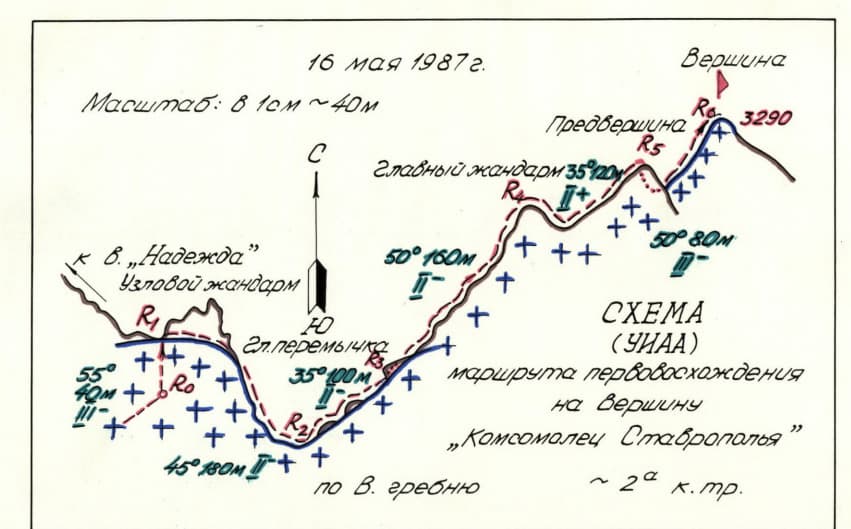 16 мая 1987г.
Вершина
Масштаб: в 1см ~ 40м
R6
3290
Предвершина
R5
С
Главный жандарм
35° 120м
II+
R4
50° 80м
III-
к в. „Надежда”
Узловой жандарм
50° 160м
II-
R1
Ю
Гл. перемычка
R3
СХЕМА
(УИАА)
маршрута первовосхождения
на вершину
„Комсомолец Ставрополья”
~ 2а к.тр.
55°
40м
III-
R0
35° 100м
II-
R2
45° 180м II-
по В. гребню